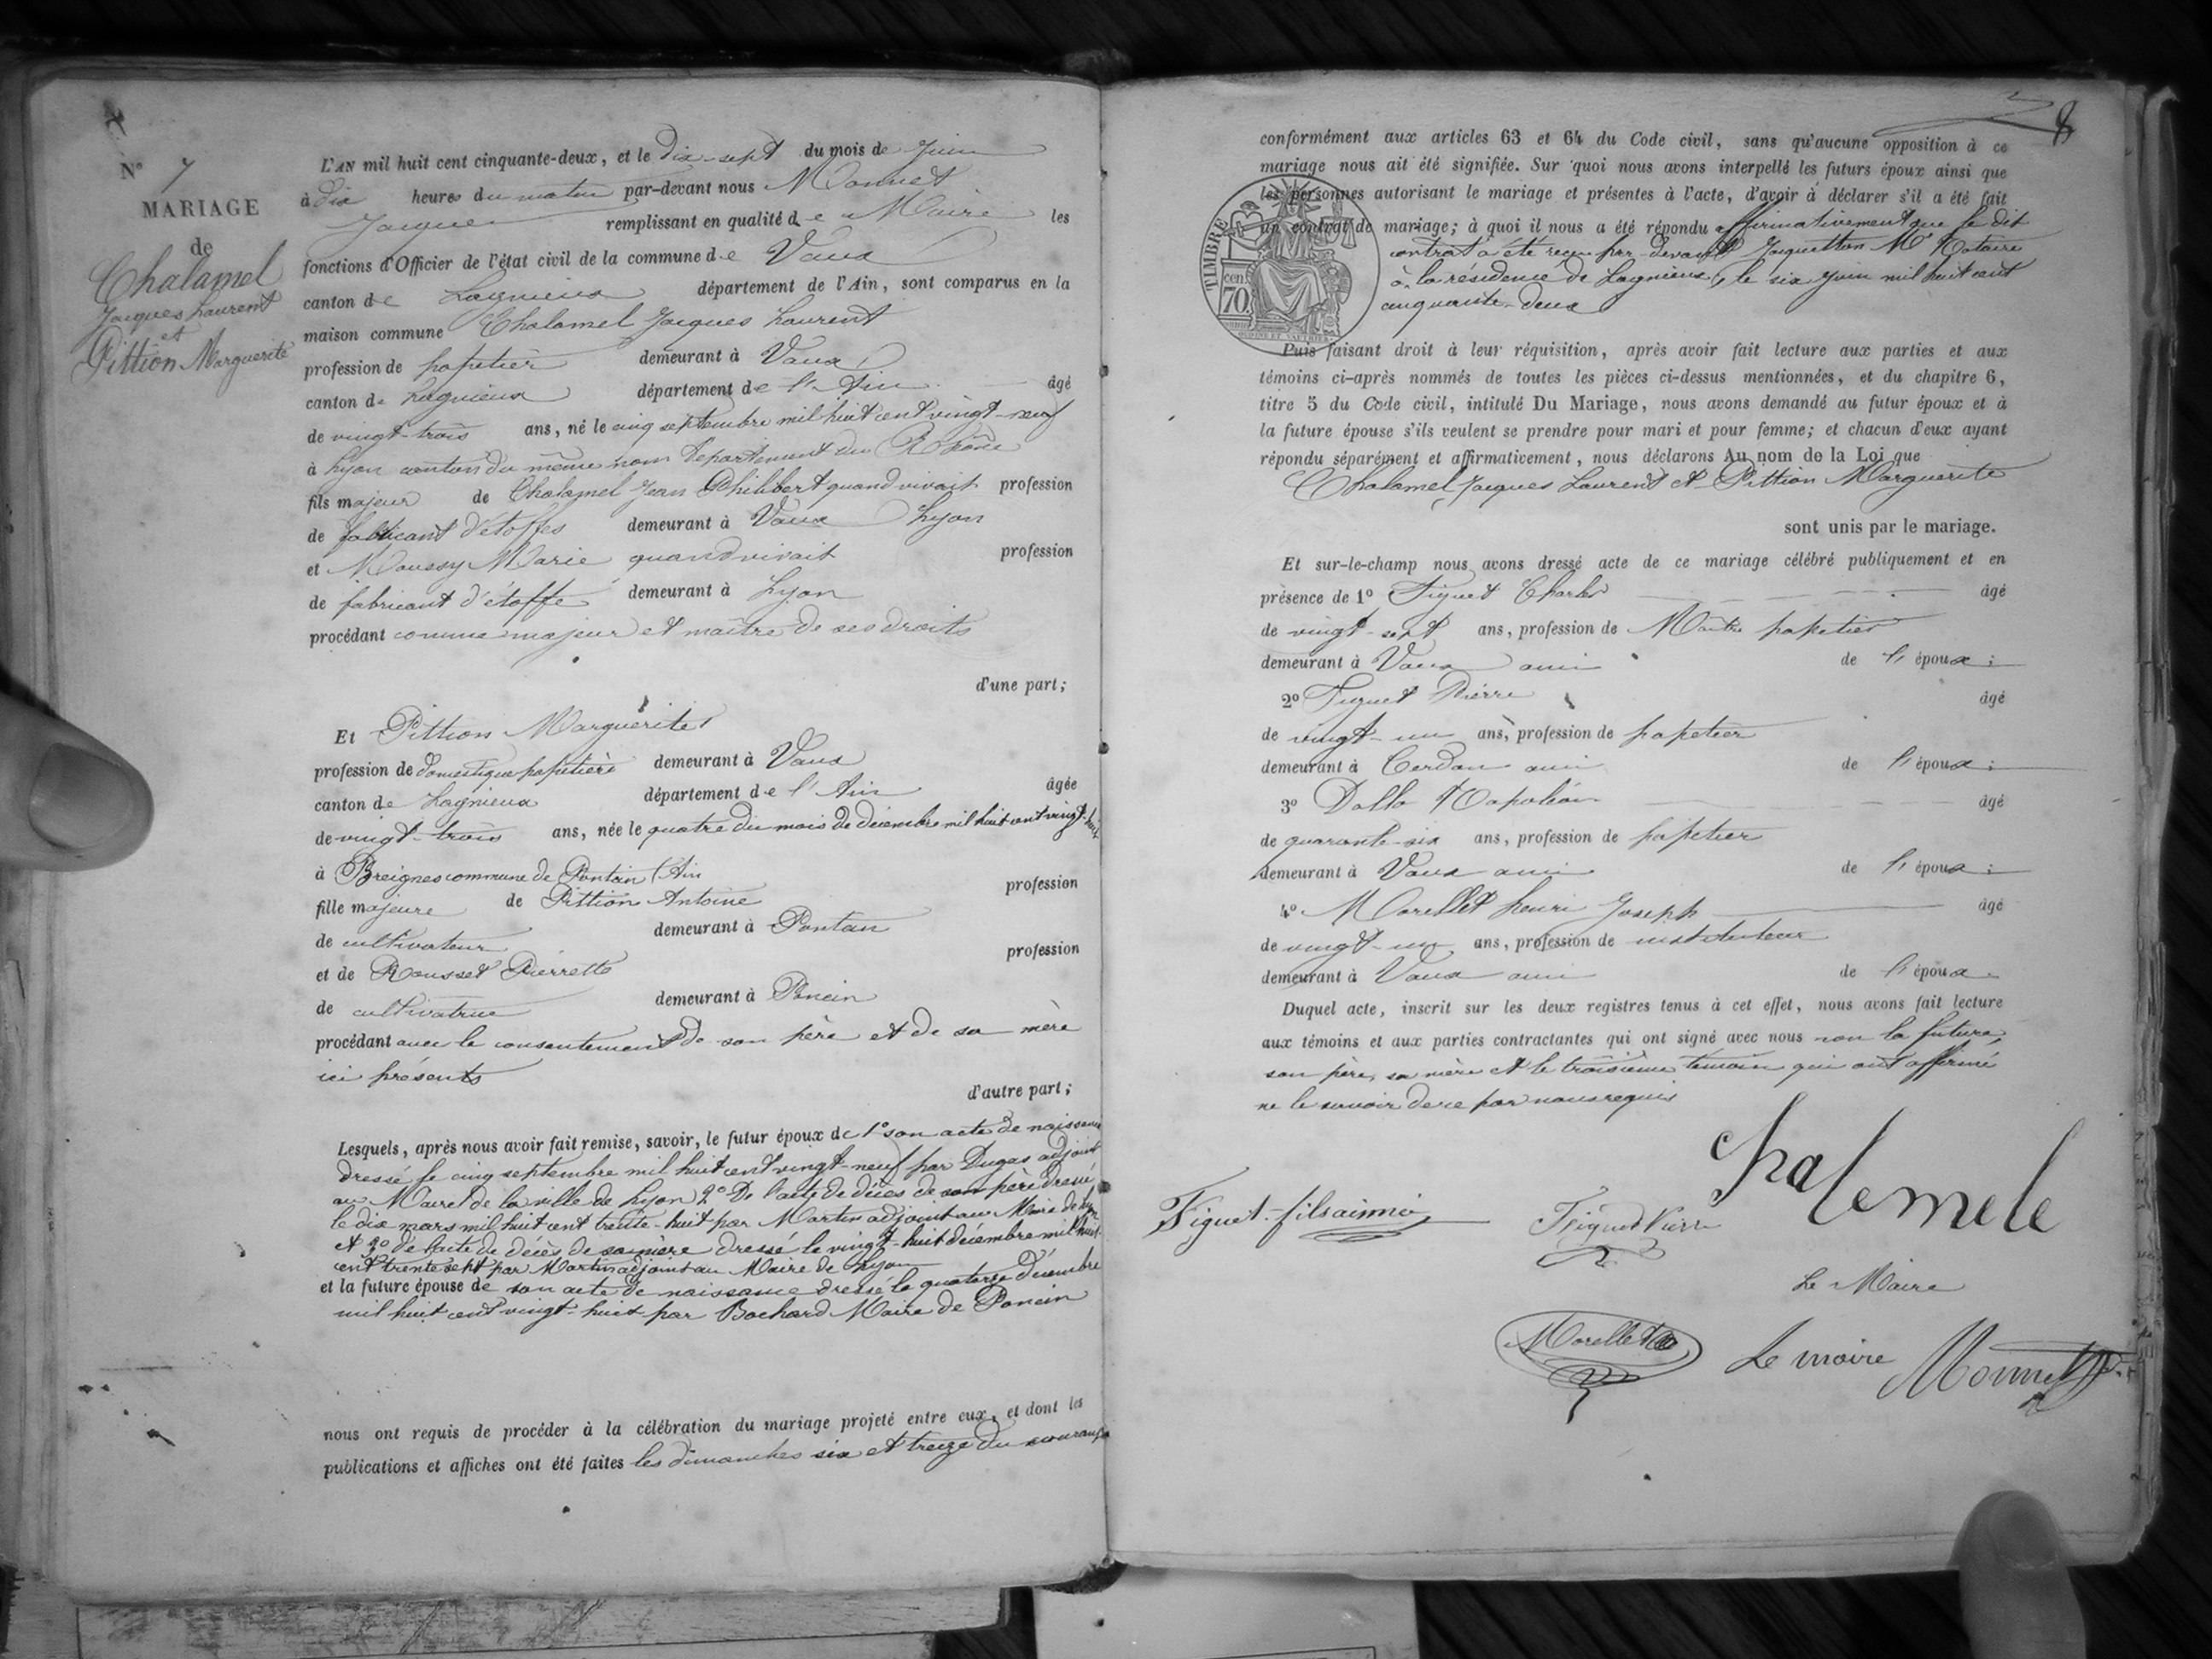 N° 7
MARIAGE
de
Chalamel
Jacques Laurent
et
Pittion Marguerite
L'AN mil huit cent cinquante-deux, et le dix-sept du mois de Juin
à dix heures du matin par-devant nous Monnet
Jacques remplissant en qualité de Maire les
fonctions d'Officier de l'état civil de la commune de Vaux
canton de Lagnieux département de l'Ain, sont comparus en la
maison commune Chalamel Jacques Laurent
profession de papetier demeurant à Vaux
canton de Lagnieux département de l'Ain âgé
de vingt-trois ans, né le cinq septembre mil huit cent vingt-neuf
à Lyon canton du même nom Département du Rhône
fils majeur de Chalamel Jean Philibert quand vivait profession
de fabricant d'étoffes demeurant à Vaux Lyon
et Maussy Marie quand vivait profession
de fabricant d'étoffe demeurant à Lyon
procédant comme majeur et maître de ses droits
d'une part;
Et Pittion Marguerite
profession de domestique papetière demeurant à Vaux
canton de Lagnieux département de l'Ain âgée
de vingt-trois ans, née le quatre du mois de décembre mil huit cent vingt-huit
à Breignes commune de Pontain (Ain
fille majeure de Pittion Antoine profession
de cultivateur demeurant à Pontan
et de Rousset Pierrette profession
de cultivatrice demeurant à Poncin
procédant avec le consentement de son père et de sa mère
ici présents
d'autre part;
Lesquels, après nous avoir fait remise, savoir, le futur époux de 1° son acte de naissance
dressé le cinq septembre mil huit cent vingt-neuf par Dugas adjoint
au Maire de la ville de Lyon 2° De l'acte de décès de son père dressé
le dix mars mil huit cent trente-huit par Martin adjoint au Maire de Lyon
et 3° de l'acte de décès de sa mère dressé le vingt-huit décembre mil huit
cent trente sept par Martin adjoint au Maire de Lyon
et la future épouse de son acte de naissance dressé le quatorze Décembre
mil huit cent vingt-huit par Bochard Maire de Poncin
nous ont requis de procéder à la célébration du mariage projeté entre eux, et dont les
publications et affiches ont été faites les dimanches six et treize du courant
8
conformément aux articles 63 et 64 du Code civil, sans qu'aucune opposition à ce
mariage nous ait été signifiée. Sur quoi nous avons interpellé les futurs époux ainsi que
les personnes autorisant le mariage et présentes à l'acte, d'avoir à déclarer s'il a été fait
un contrat de mariage; à quoi il nous a été répondu affirmativement que le dit
contrat a été reçu par-devant Jacquetton Me Notaire
à la résidence de Lagnieux, le six juin mil huit cent
cinquante-deux
TIMBRE
70 cen
Puis faisant droit à leur réquisition, après avoir fait lecture aux parties et aux
témoins ci-après nommés de toutes les pièces ci-dessus mentionnées, et du chapitre 6,
titre 5 du Code civil, intitulé Du Mariage, nous avons demandé au futur époux et à
la future épouse s'ils veulent se prendre pour mari et pour femme; et chacun d'eux ayant
répondu séparément et affirmativement, nous déclarons Au nom de la Loi que
Chalamel Jacques Laurent et Pittion Marguerite
sont unis par le mariage.
Et sur-le-champ nous avons dressé acte de ce mariage célébré publiquement et en
présence de 1° Figuet Charles âgé
de vingt-sept ans, profession de Maître papetier
demeurant à Vaux ami de l'époux;
2° Figuet Pierre âgé
de vingt-un ans, profession de papetier
demeurant à Cerdon ami de l'époux;
3° Dallo Napoléon âgé
de quarante-six ans, profession de papetier
demeurant à Vaux ami de l'époux;
4° Morellet henri Joseph âgé
de vingt-un ans, profession de instituteur
demeurant à Vaux ami de l'époux
Duquel acte, inscrit sur les deux registres tenus à cet effet, nous avons fait lecture
aux témoins et aux parties contractantes qui ont signé avec nous non la future,
son père, sa mère et le troisième témoin qui ont affirmé
ne le savoir de ce par nous requis
Chalemele
Figuet fils ainné
Figuet Pierre
Le Maire
Morellet
Le maire Monnet